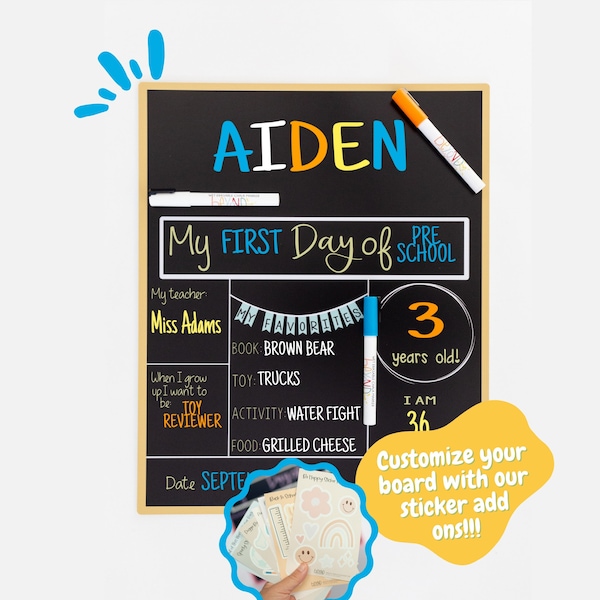 AIDEN
My FIRST Day of PRE SCHOOL
My teacher:
Miss Adams
When I grow
up I want to
be: TOY
REVIEWER
MY FAVORITES
BOOK: BROWN BEAR
TOY: TRUCKS
ACTIVITY: WATER FIGHT
FOOD: GRILLED CHEESE
3
years old!
I AM
36
Date SEPTE
Customize your
board with our
sticker add
ons!!!